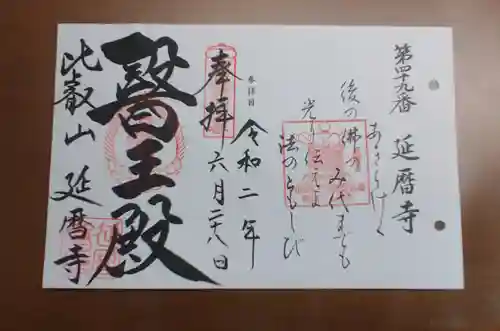 第四十九番 延暦寺
あきらけく
後の佛の
み代までも
光り伝えよ
法のともしび
参拝日
令和二年
奉拝 六月二十八日
醫王殿
比叡山 延暦寺